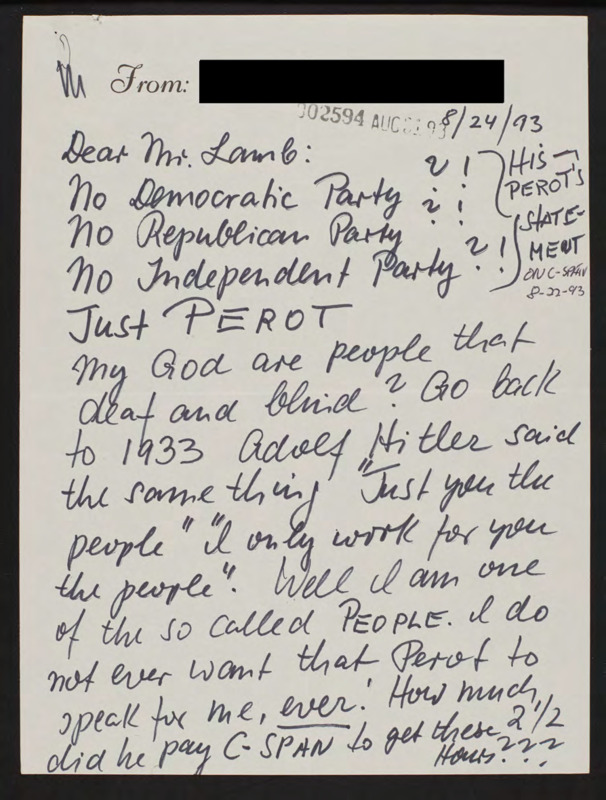 From:
002594 AUG 31 93
8/24/93
Dear Mr. Lamb:
No Democratic Party ?!
No Republican Party ?!
No Independent Party ?!
HIS
PEROT'S
STATE-
MENT
ON C-SPAN
8-22-93
Just PEROT
My God are people that
deaf and blind? Go back
to 1933 Adolf Hitler said
the same thing "Just you the
people" "I only work for you
the people". Well I am one
of the so called PEOPLE. I do
not ever want that Perot to
speak for me, ever! How much
did he pay C-SPAN to get these 2 1/2
Hours???